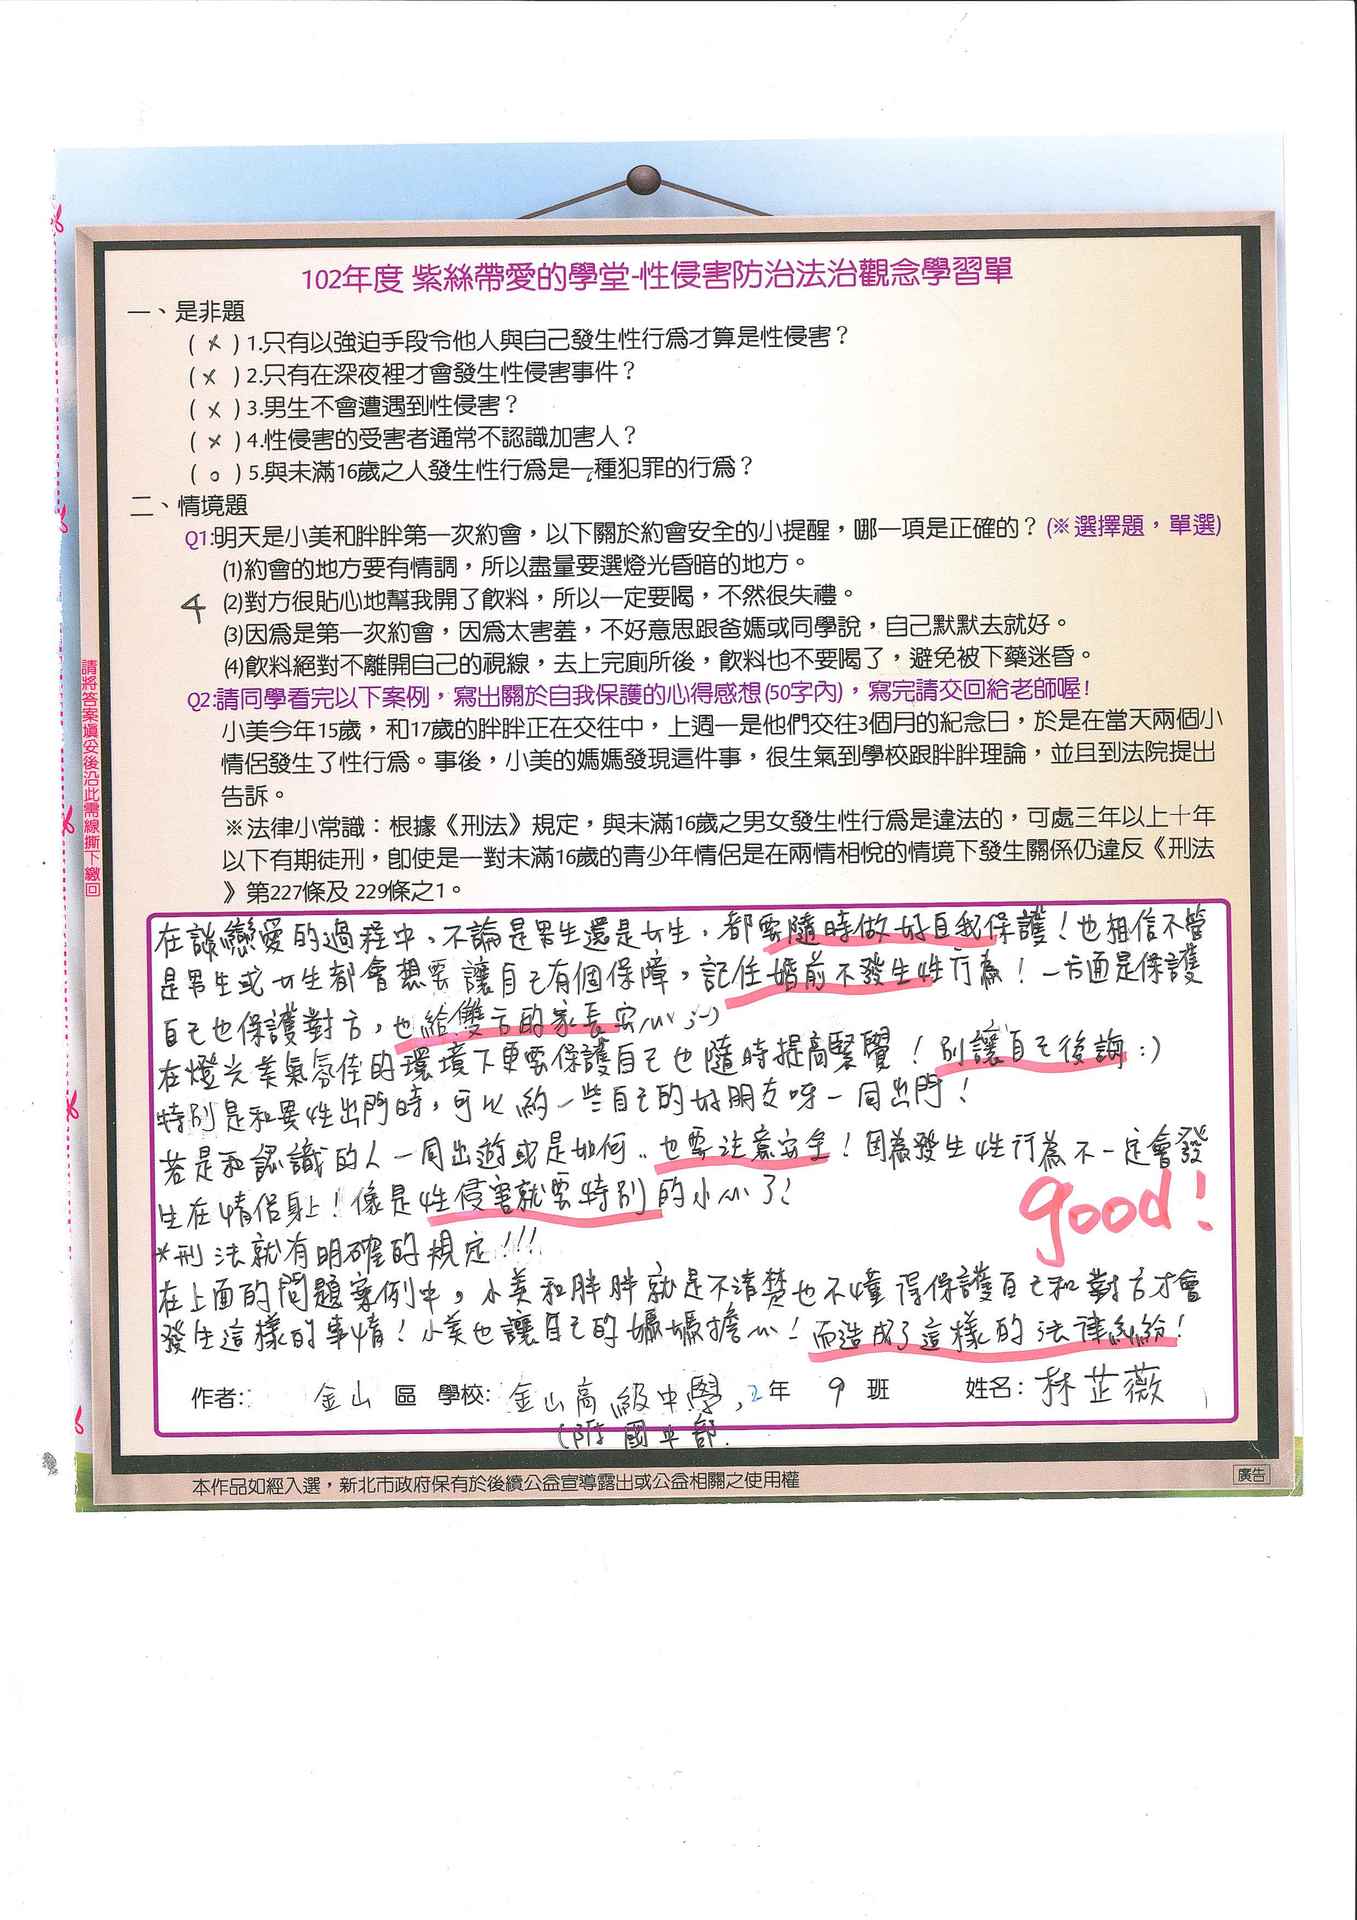 102年度 紫絲帶愛的學堂-性侵害防治法治觀念學習單
一、是非題
( × ) 1.只有以強迫手段令他人與自己發生性行為才算是性侵害？
( × ) 2.只有在深夜裡才會發生性侵害事件？
( × ) 3.男生不會遭遇到性侵害？
( × ) 4.性侵害的受害者通常不認識加害人？
( o ) 5.與未滿16歲之人發生性行為是一種犯罪的行為？
二、情境題
Q1:明天是小美和胖胖第一次約會，以下關於約會安全的小提醒，哪一項是正確的？(※選擇題，單選)
(1)約會的地方要有情調，所以盡量要選燈光昏暗的地方。
4 (2)對方很貼心地幫我開了飲料，所以一定要喝，不然很失禮。
(3)因為是第一次約會，因為太害羞，不好意思跟爸媽或同學說，自己默默去就好。
(4)飲料絕對不離開自己的視線，去上完廁所後，飲料也不要喝了，避免被下藥迷昏。
Q2:請同學看完以下案例，寫出關於自我保護的心得感想(50字內)，寫完請交回給老師喔!
小美今年15歲，和17歲的胖胖正在交往中，上週一是他們交往3個月的紀念日，於是在當天兩個小
情侶發生了性行為。事後，小美的媽媽發現這件事，很生氣到學校跟胖胖理論，並且到法院提出
告訴。
※法律小常識：根據《刑法》規定，與未滿16歲之男女發生性行為是違法的，可處三年以上十年
以下有期徒刑，即使是一對未滿16歲的青少年情侶是在兩情相悅的情境下發生關係仍違反《刑法
》第227條及 229條之1。
請將答案填妥後沿此需線撕下繳回
在談戀愛的過程中，不論是男生還是女生，都要隨時做好自我保護！也相信不管
是男生或女生都會想要讓自己有個保障，記住婚前不發生性行為！一方面是保護
自己也保護對方，也給雙方的家長安心 :-)
在燈光美氣氛佳的環境下更要保護自己也隨時提高警覺！別讓自己後誨 :)
特別是和異性出門時，可以約一些自己的好朋友呀一同出門！
若是和認識的人一同出遊或是如何..也要注意安全！因為發生性行為不一定會發
生在情侶身上！像是性侵害就要特別的小心了！
*刑法就有明確的規定!!!
在上面的問題案例中，小美和胖胖就是不清楚也不懂得保護自己和對方才會
發生這樣的事情！小美也讓自己的媽媽擔心！而造成了這樣的法律糾紛！
good!
作者: 金山 區 學校: 金山高級中學, 2 年 9 班 姓名: 林芷薇
(附國中部.
本作品如經入選，新北市政府保有於後續公益宣導露出或公益相關之使用權
廣告